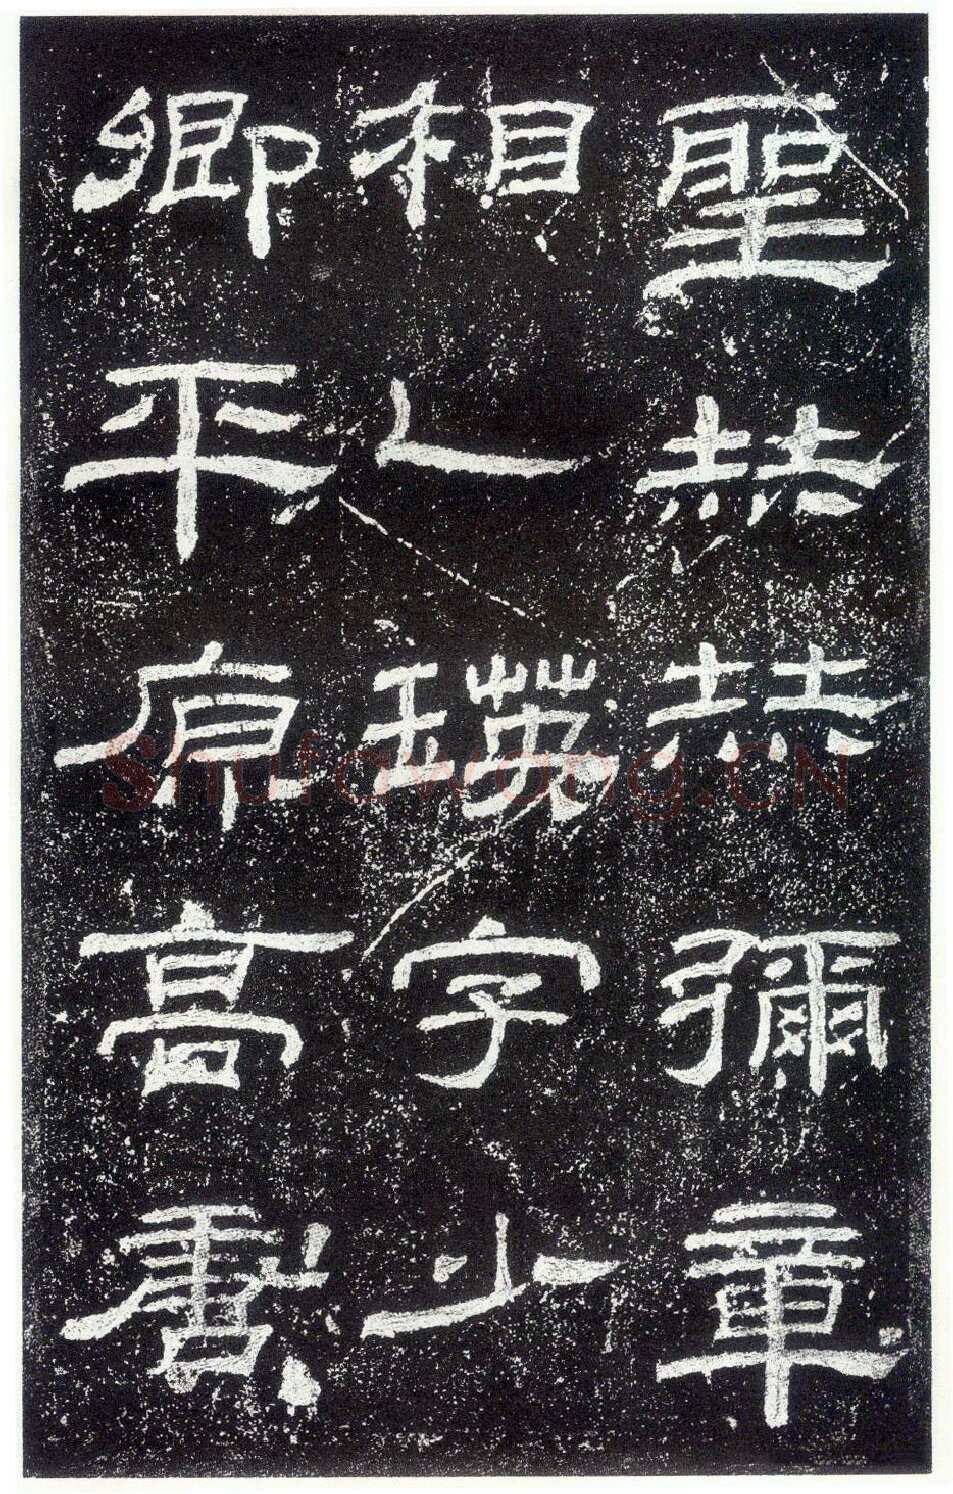 聖赫赫彌章
相乀瑛字少
卿平原高唐
shufawang.CN